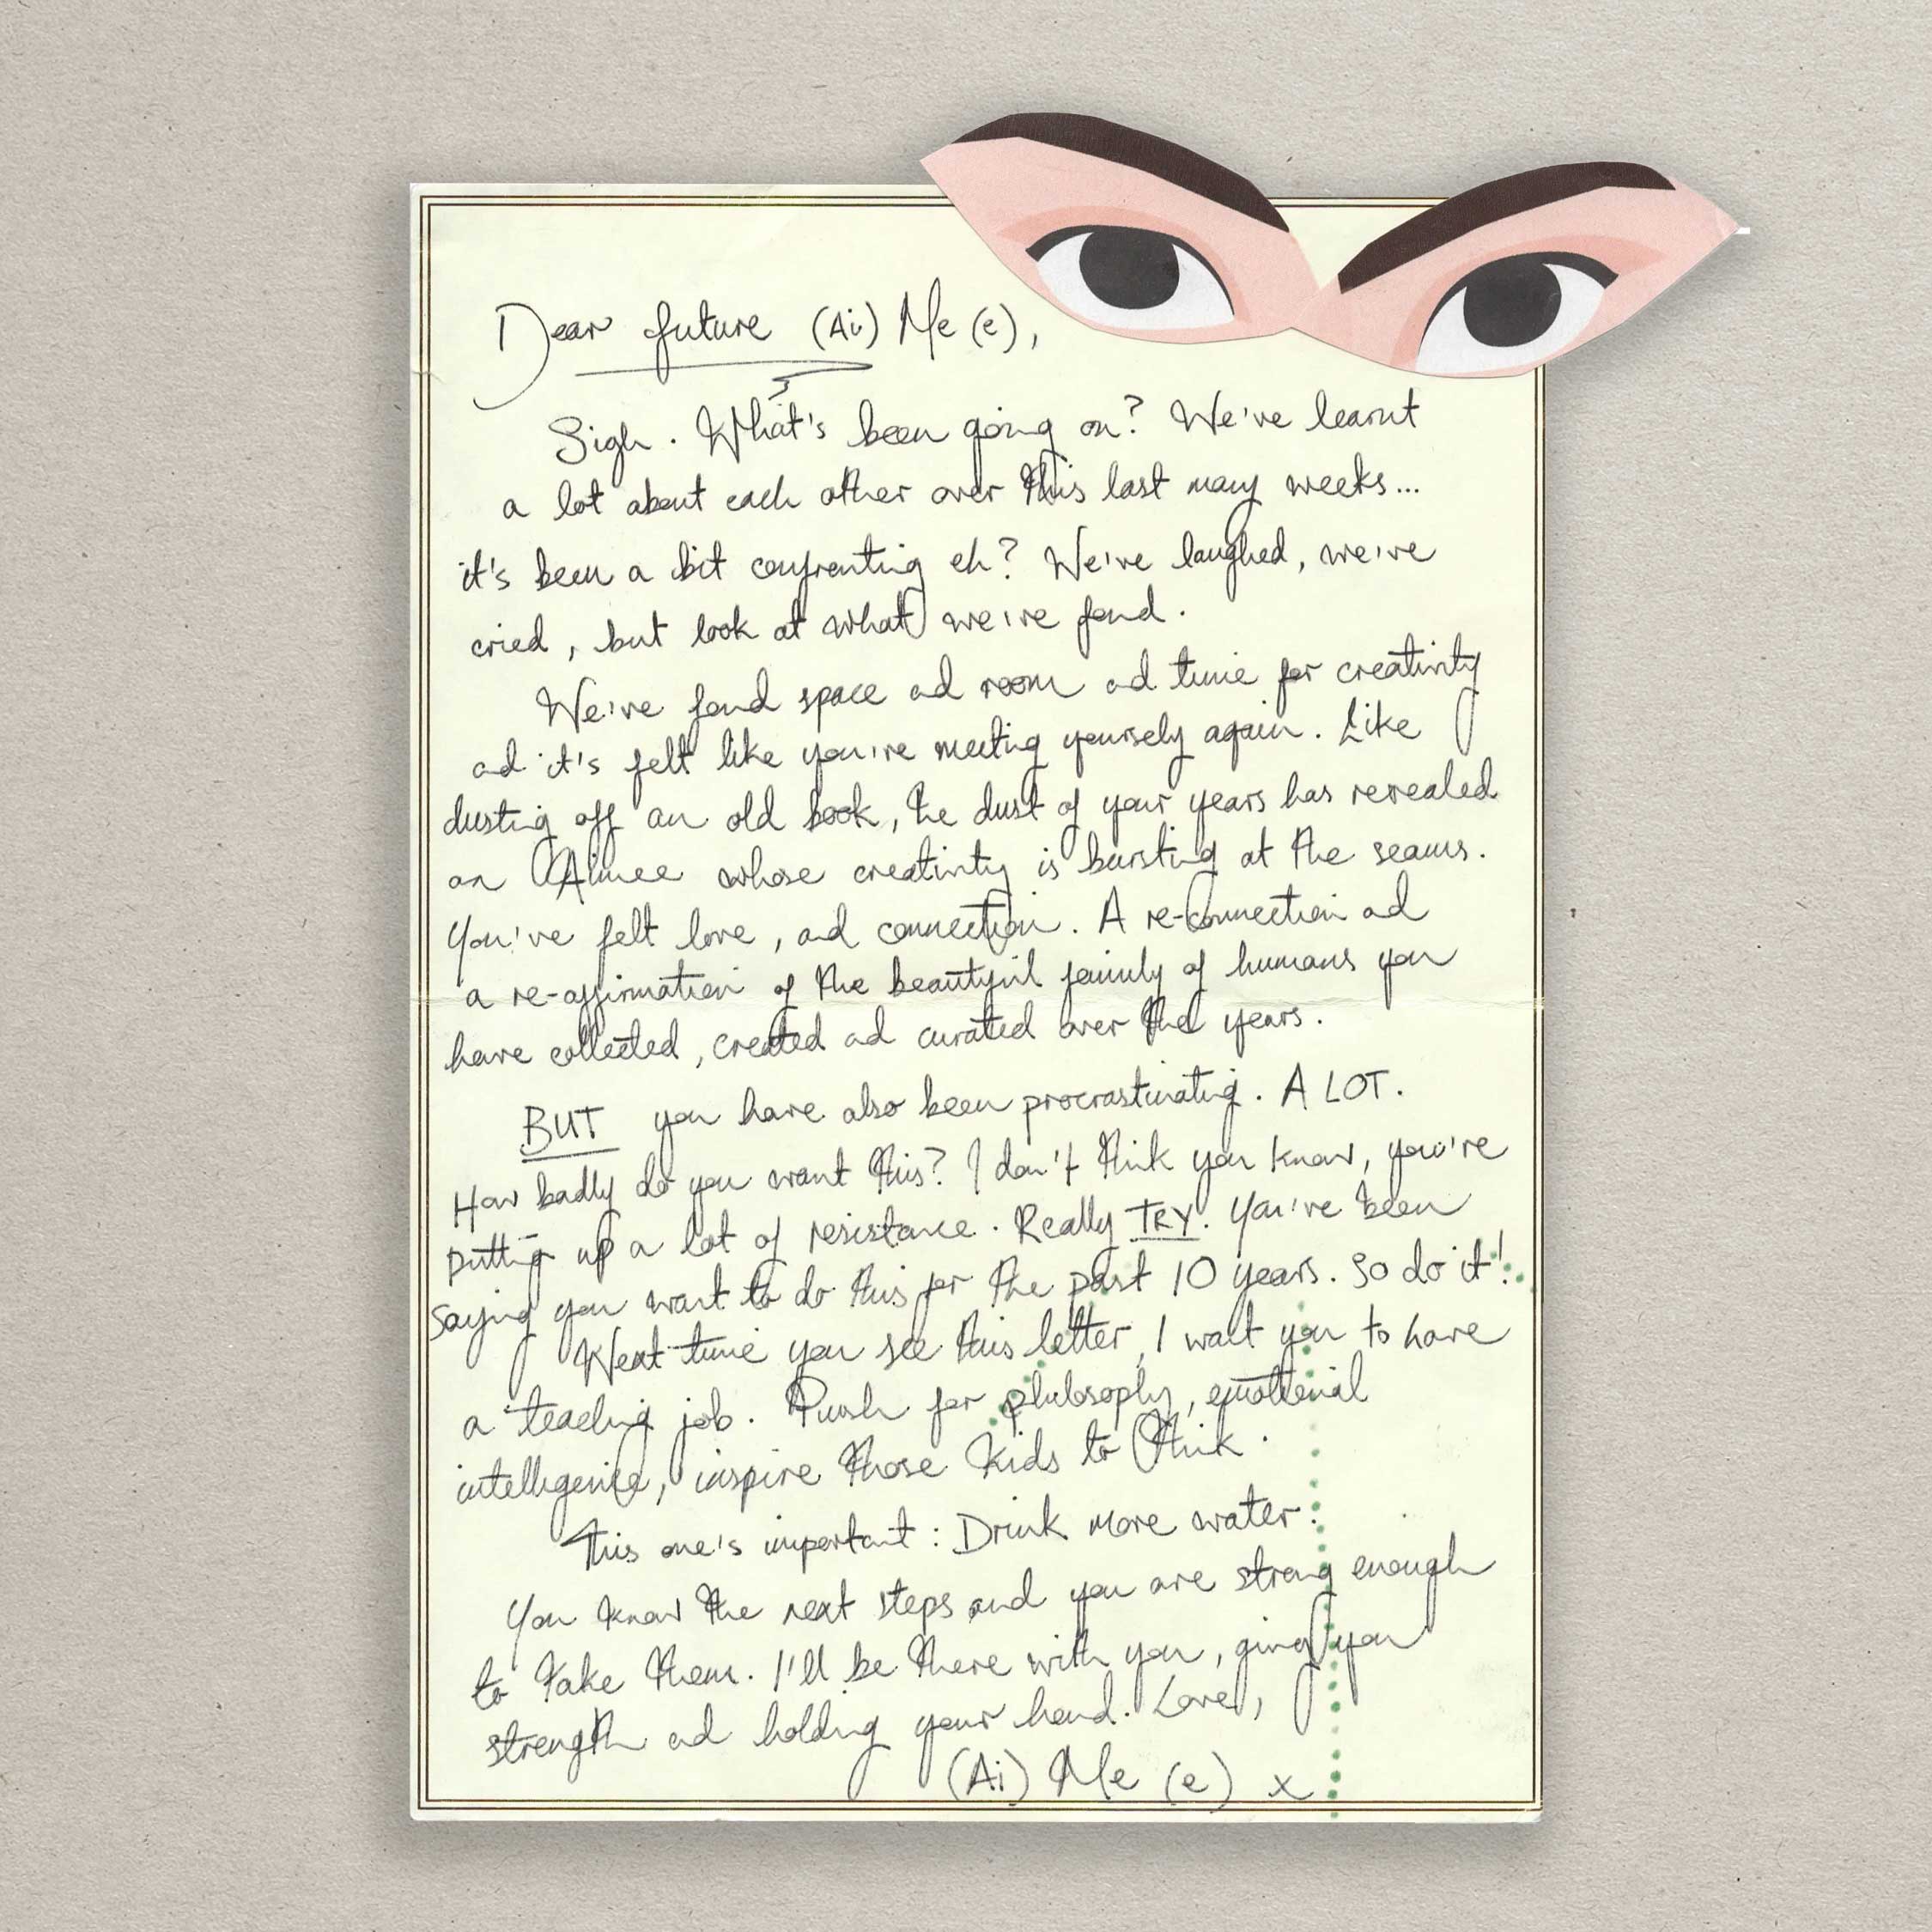 Dear future (Ai) Me (e),
Sigh. What's been going on? We've learnt
a lot about each other over this last many weeks...
it's been a bit confronting eh? We've laughed, we've
cried, but look at what we've found.
We've found space and room and time for creativity
and it's felt like you're meeting yourself again. Like
dusting off an old book, the dust of your years has revealed
an Aimee whose creativity is bursting at the seams.
You've felt love, and connection. A re-connection and
a re-affirmation of the beautiful family of humans you
have collected, created and curated over the years.
BUT you have also been procrastinating. A LOT.
How badly do you want this? I don't think you know, you're
putting up a lot of resistance. Really TRY. You've been
saying you want to do this for the past 10 years. So do it!
Next time you see this letter, I want you to have
a teaching job. Push for philosophy, emotional
intelligence, inspire those kids to think.
This one's important: Drink more water.
You know the next steps and you are strong enough
to take them. I'll be there with you, giving you
strength and holding your hand. Love,
(Ai) Me (e) x